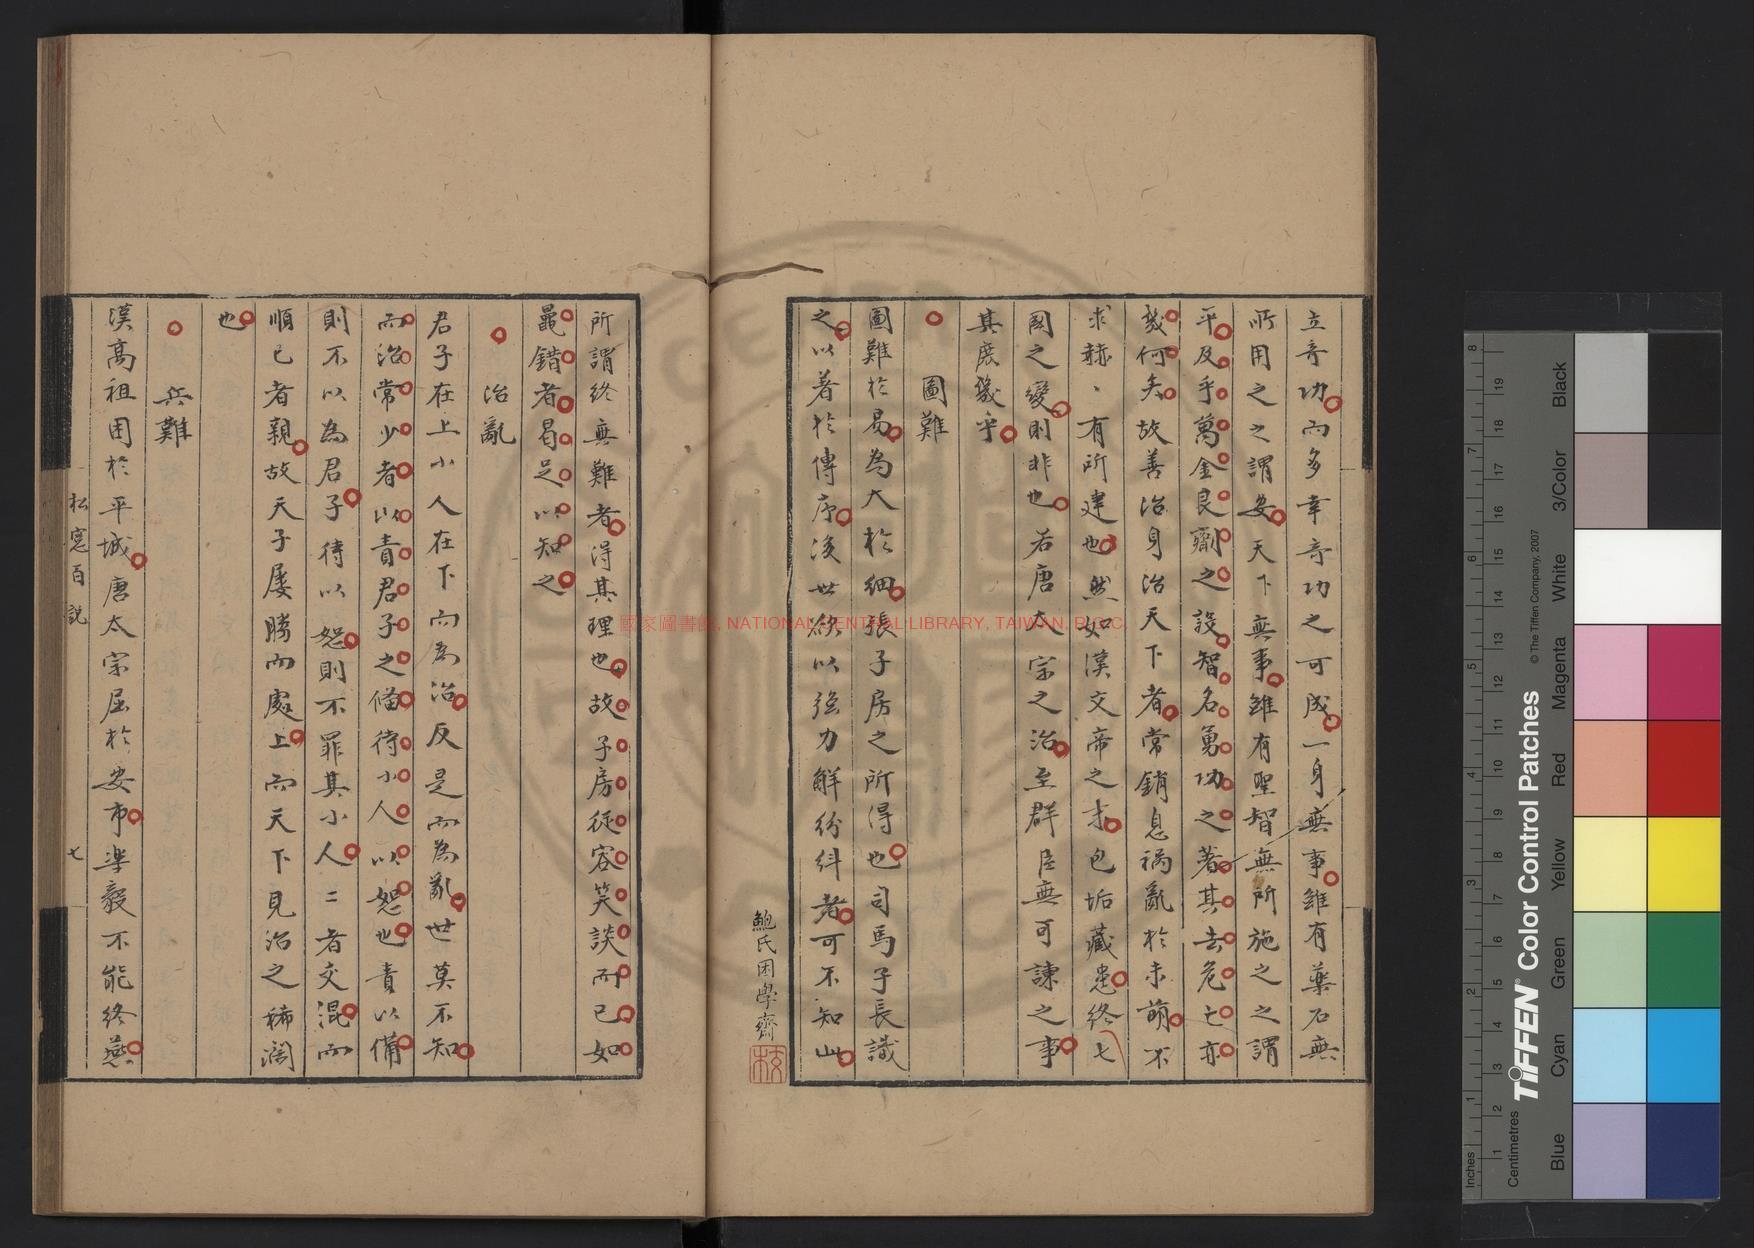 立奇功而多幸奇功之可成一身無事雖有藥石無
所用之之謂安天下無事雖有聖智無所施之之謂
平及乎萬金良劑之設智名勇功之著其去危亡亦
幾何矣故善治身治天下者常銷息禍亂於未萌不
求赫、有所建也然如漢文帝之才包垢藏患終七
國之變則非也若唐太宗之治至群臣無可諫之事
其庶幾乎
圖難
圖難於易為大於細張子房之所得也司馬子長識
之以著於傳序後世欲以強力解紛糾者可不知
鮑氏困學齋
所謂終無難者得其理也故子房從容笑談而已如
鼂錯者曷足以知之
治亂
君子在上小人在下而為治反是而為亂世莫不知
而治常少者以責君子之備待小人以恕也責以備
則不以為君子待以恕則不罪其小人二者交混而
順已者親故天子屡勝而處上而天下見治之稀濶
也
兵難
漢高祖困於平城唐太宗屈於安市樂毅不能終燕
松窓百說
七
國家圖書館, NATIONAL CENTRAL LIBRARY, TAIWAN, R.O.C.
Inches
1 2 3 4 5 6 7 8
Centimetres
1 2 3 4 5 6 7 8 9 10 11 12 13 14 15 16 17 18 19
TIFFEN® Color Control Patches
© The Tiffen Company, 2007
Blue
Cyan
Green
Yellow
Red
Magenta
White
3/Color
Black